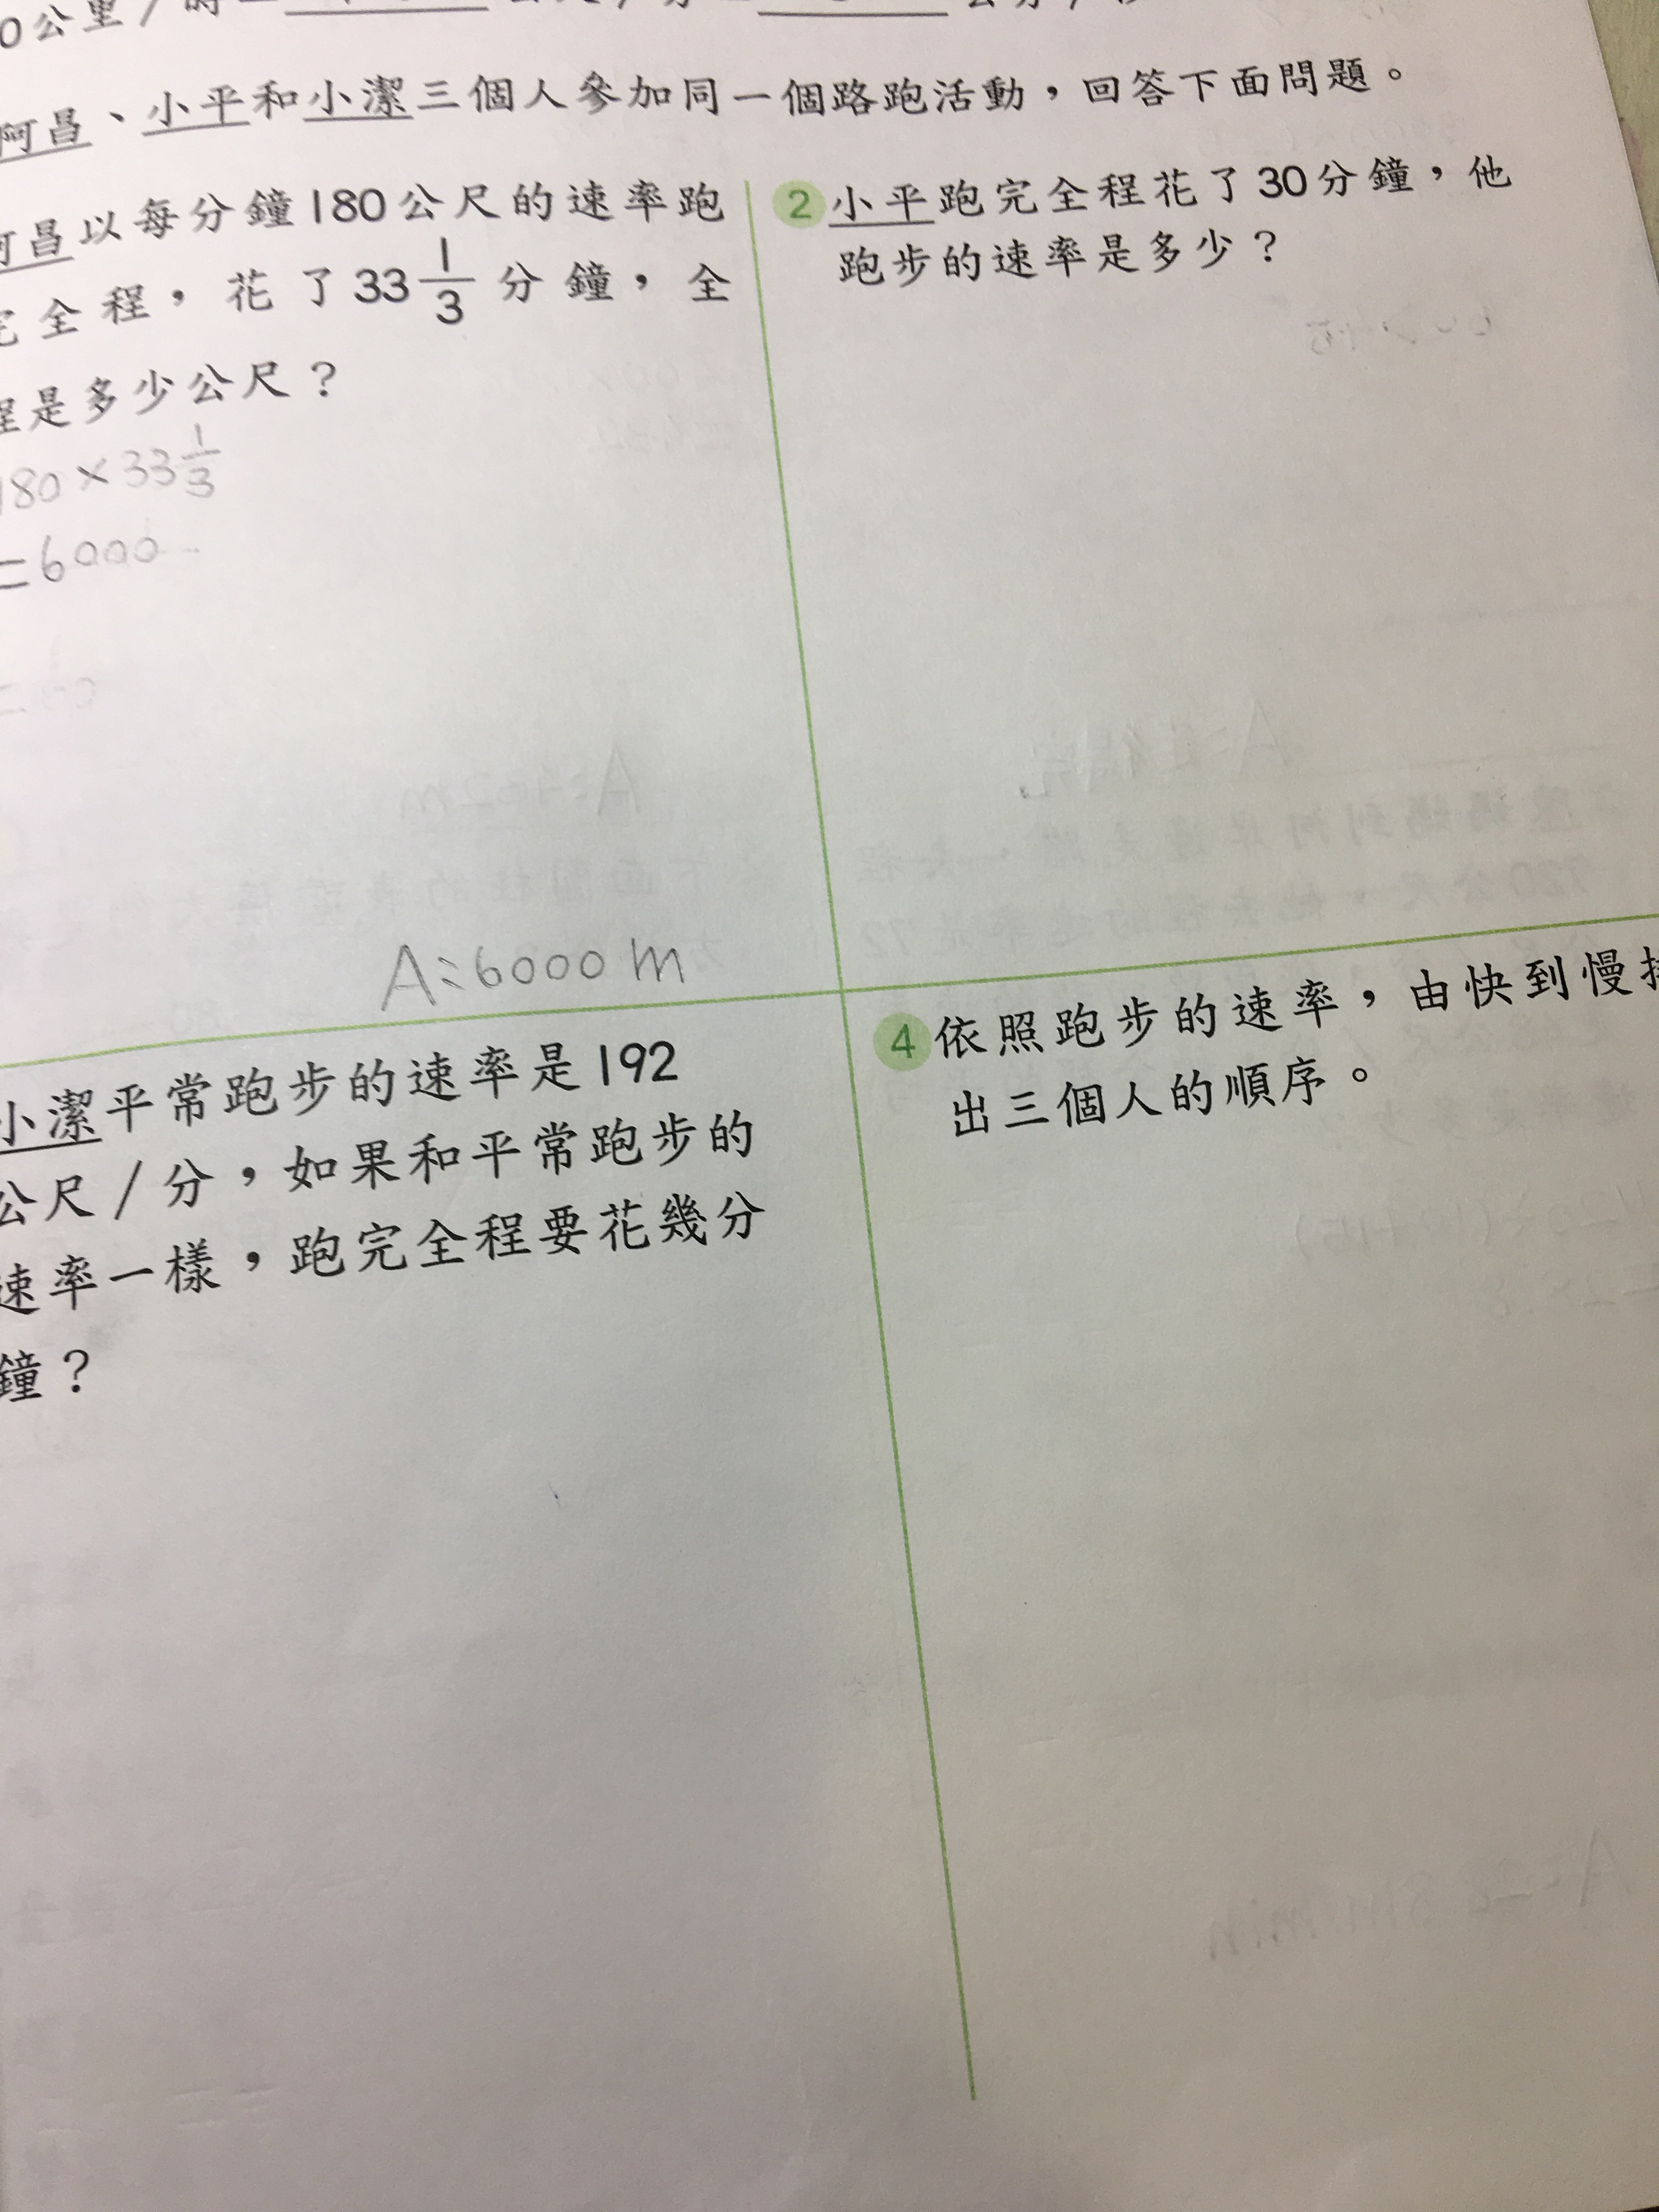 0公里/時
阿昌、小平和小潔三個人參加同一個路跑活動，回答下面問題。
阿昌以每分鐘180公尺的速率跑
完全程，花了33 1/3 分鐘，全
程是多少公尺？
180×33 1/3
=6000
A:6000 m
2 小平跑完全程花了30分鐘，他
跑步的速率是多少？
小潔平常跑步的速率是192
公尺/分，如果和平常跑步的
速率一樣，跑完全程要花幾分
鐘？
4 依照跑步的速率，由快到慢排
出三個人的順序。